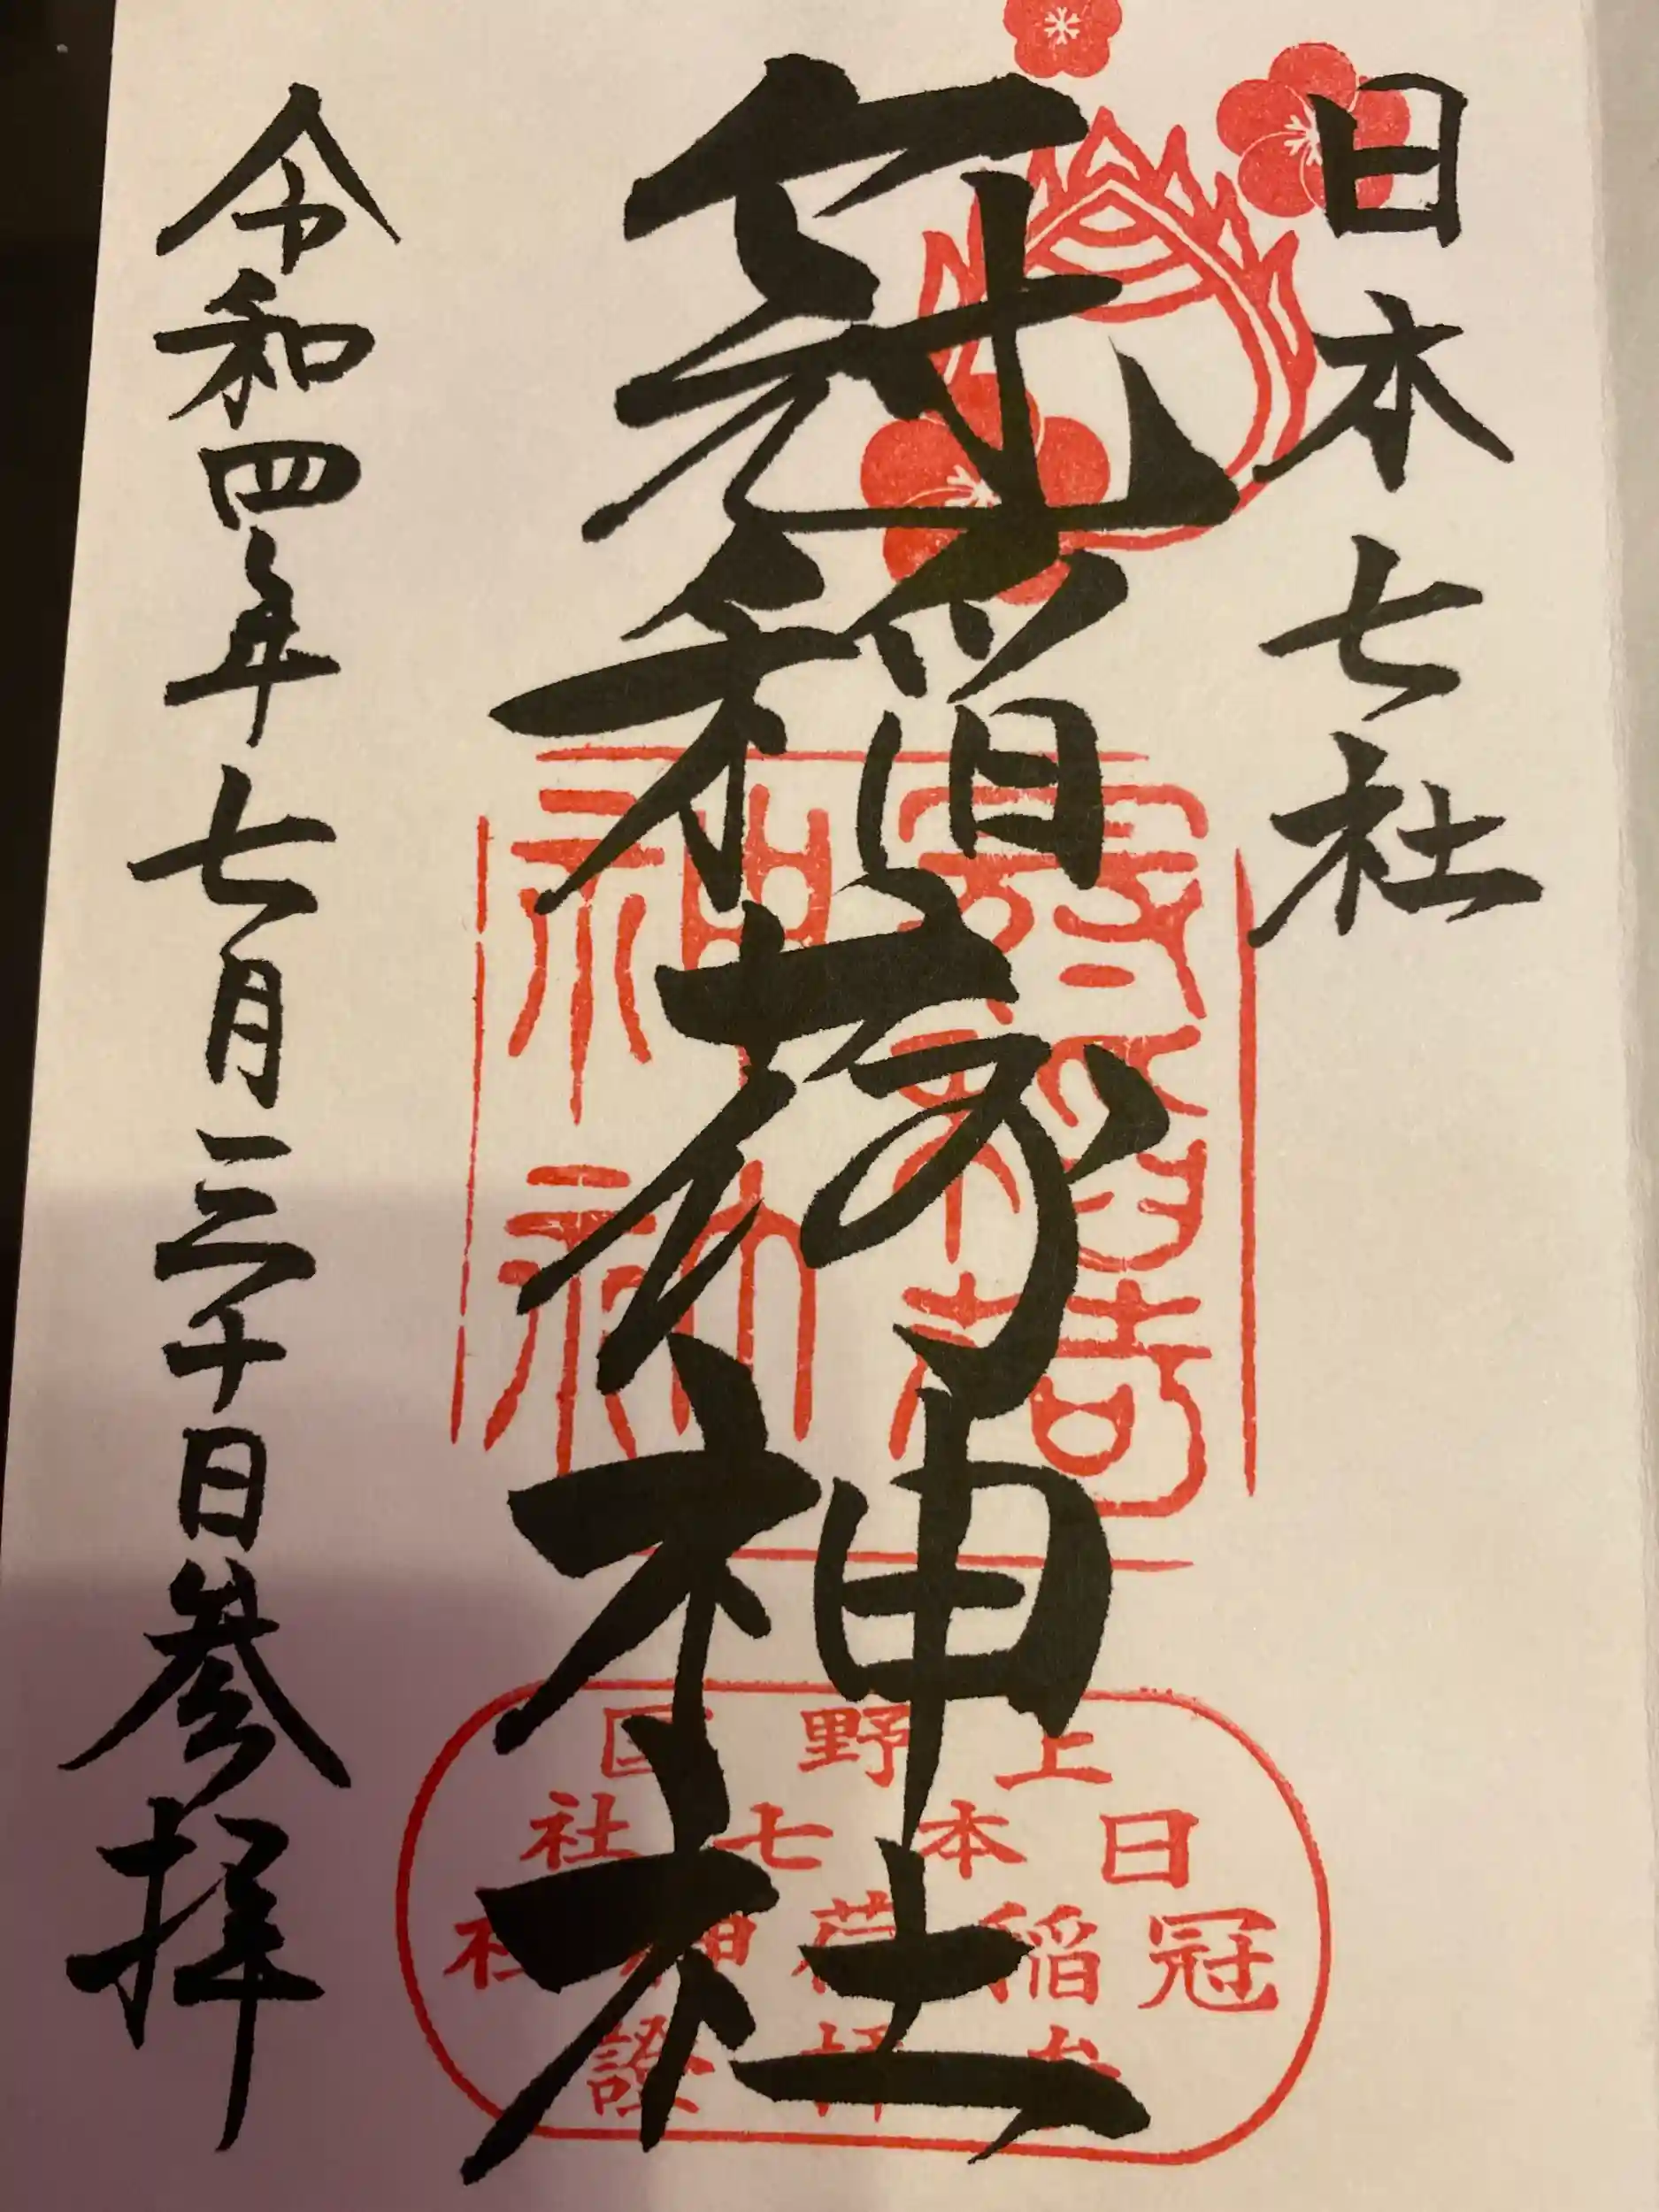 日本七社
冠稲荷神社
令和四年七月三十日参拝
冠稲荷
神社
上野国
日本七社
冠稲荷神社
参拝證